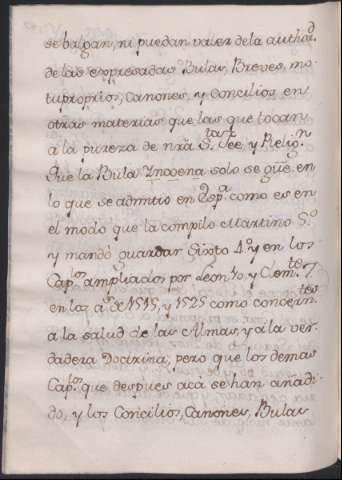 se balgan, ni puedan valer de la author.d
de las expresadas Bulas, Breves, mo
tuproprios, Canones, y Concilios en
otras materias que las que tocan
a la pureza de nrã S.ta Fee, y Relig.n
Que la Bula Ynocena solo se güe en
lo que se admitio en Esp.a como es en
el modo que la compilo Martino 5.o
y mandò guardar Sixto 4.o y en los
Cap.los ampliados por Leon 10 y Clem.te 7.
en los a.s de 1515, y 1525 como concern.tes
a la salud de las Almas, y a la ver
dadera Doctrina, pero que los demas
Cap.los que despues acà se han añadi
do, y los Concilios, Canones, Bulas